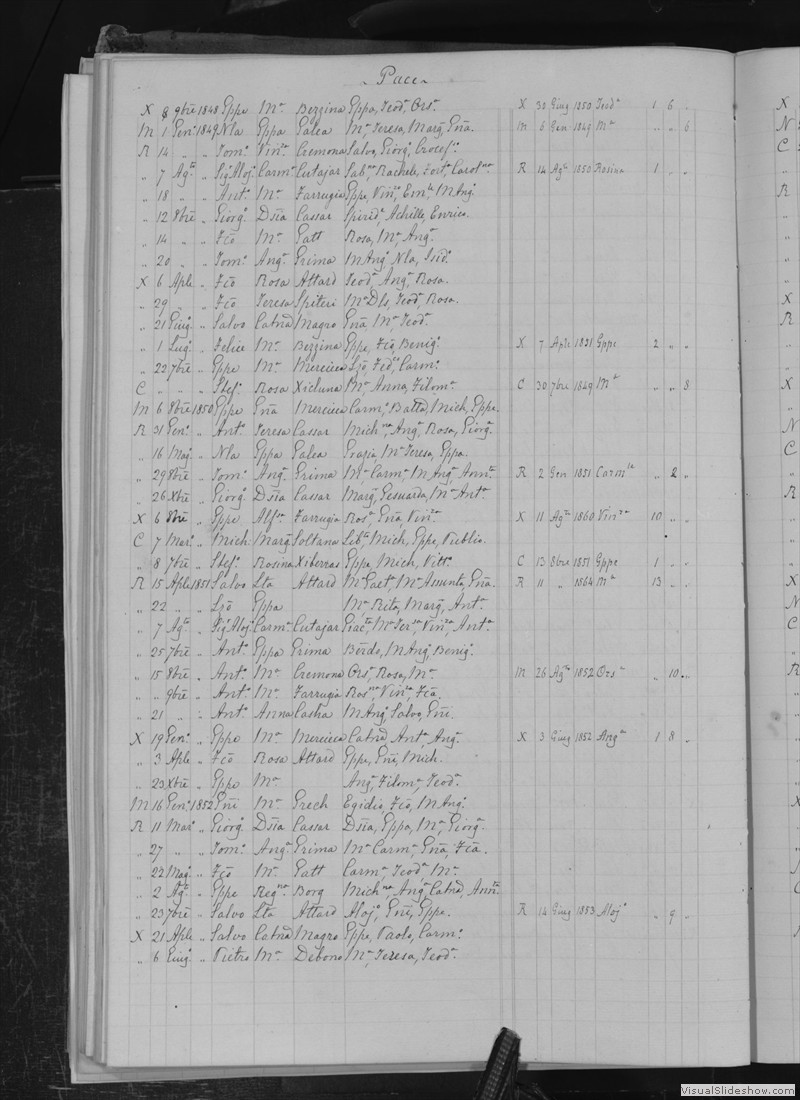 Pace
X 8 9bre 1848 Eppe Ma Bezzina Eppa, Teoda, Orsa X 30 Giug 1850 Teoda 1 6 "
M 1 Genо 1849 Nla Eppa Galea Ma, Teresa, Marga, Gna. M 6 Gen 1849 Ma " " 6
R 14 " " Tomo Vinza Cremona Salva, Giorga, Crocefa
" 7 Agto " Pio Aloj Carma Cutajar Sabna, Rachele, Forta, Carolna R 14 Agto 1850 Rosina 1 " "
" 18 " " Anto Ma Farrugia Eppe, Vinzo, Emle, M Anga
" 12 8bre " Giorgo Dsia Cassar Spirido, Achille, Enrico.
" 14 " " Fco Ma Gatt Rosa, Ma, Anga
" 20 " " Tomo Anga Grima M Anga, Nla, Isido
X 6 Aple " Fco Rosa Attard Teoda, Anga, Rosa.
" 29 " " Fco Teresa Spiteri Ma Dls, Teoda, Rosa.
" 21 Giugo " Salvo Catna Magro Gna, Ma, Teoda
" 1 Lugo " Felice Ma Bezzina Eppe, Fco, Benigo X 7 Aple 1851 Eppe 2 " "
" 22 7bre " Eppe Ma Mercieca Ljo, Carmo
C " " " Stefo Rosa Xicluna Ma, Anna, Filoma C 30 7bre 1849 Ma " " 8
M 6 8bre 1850 Eppe Gna Mercieca Carmo, Batta, Mich, Eppe.
R 31 Geno " Anto Teresa Cassar Michna, Anga, Rosa, Giorga
" 16 Mago " Nla Eppa Galea Grazia, Ma, Teresa, Eppa.
" 29 8bre " Tomo Anga Grima Ma Carma, M Anga, Annta R 2 Gen 1851 Carmla " 2 "
" 26 Xbre " Giorgo Dsia Cassar Marga, Gesuarda, Ma, Anta
X 6 8bre " Eppe Alfsa Farrugia Rosa, Gna, Vinza X 11 Agto 1860 Vinza 10 " "
C 7 Maro " Mich Marga Soltana Mich, Eppe, Publio.
" 8 7bre " Stefo Rosina Xiberras Eppe, Mich, Vitto C 13 8bre 1851 Eppe 1 " "
R 15 Aple 1851 Salvo Lta Attard Ma Gaet, Ma Assunta, Gna. R 11 " 1864 Ma 13 " "
" 22 " " Ljo Eppa Ma, Rita, Marga, Anta
" 7 Agto " Pio Aloj Carma Cutajar Giacta, Ma Tersa, Vinza, Anta
" 25 7bre " Anto Eppa Grima Berdo, M Anga, Beniga
" 15 8bre " Anto Ma Cremona Orsa, Rosa, Ma M 26 Agto 1852 Orsa " 10 "
" " 9bre " Anto Ma Farrugia Rosna, Vinza, Fca.
" 21 " " Anto Anna Casha M Anga, Salvo, Gne.
X 19 Geno " Eppe Ma Mercieca Catna, Anta, Anga X 3 Giug 1852 Anga 1 8 "
" 3 Aple " Fco Rosa Attard Eppe, Gne, Mich.
" 23 Xbre " Eppe Ma Anga, Filoma, Teoda
M 16 Geno 1852 Gne Ma Grech Egidio, Fco, M Anga
R 11 Maro " Giorgo Dsia Cassar Dsia, Eppa, Ma, Giorga
" 27 " " Tomo Anga Grima Ma Carma, Gna, Fca.
" 22 Mago " Fco Ma Gatt Carma, Teoda, Ma
" 2 Agto " Eppe Regna Borg Michna, Anga, Catna, Annta
" 23 7bre " Salvo Lta Attard Alojo, Gne, Eppe. R 14 Giug 1853 Alojo " 9 "
X 21 Aple " Salvo Catna Magro Eppe, Paolo, Carmo
" 6 Giugo " Pietro Ma Debono Ma, Teresa, Teoda
VisualSlideshow.com